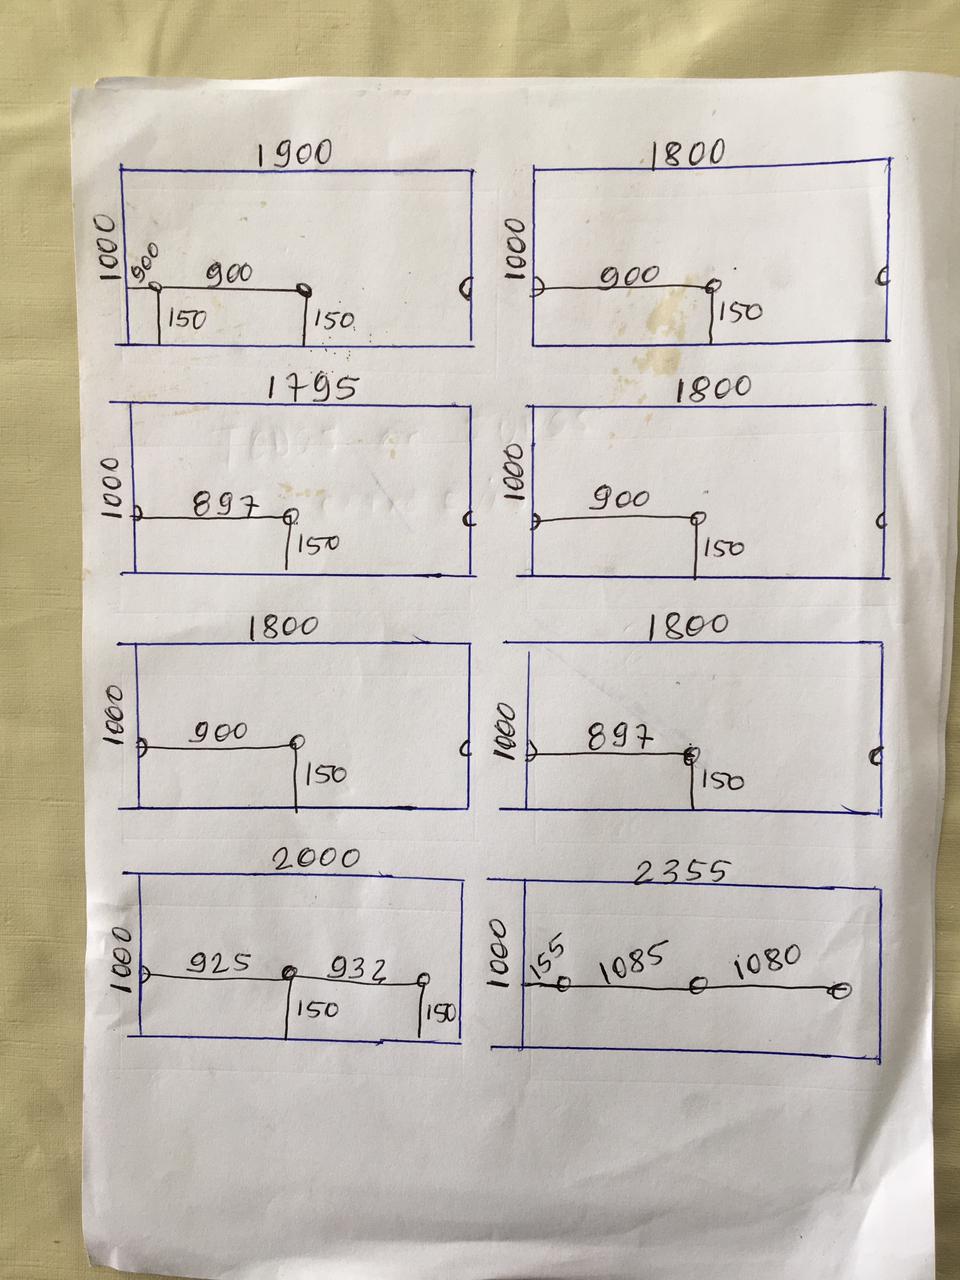 1900
1000
900
900
150
150
1800
1000
900
150
1795
1000
897
150
1800
1000
900
150
1800
1000
900
150
1800
1000
897
150
2000
1000
925
932
150
150
2355
1000
155
1085
1080